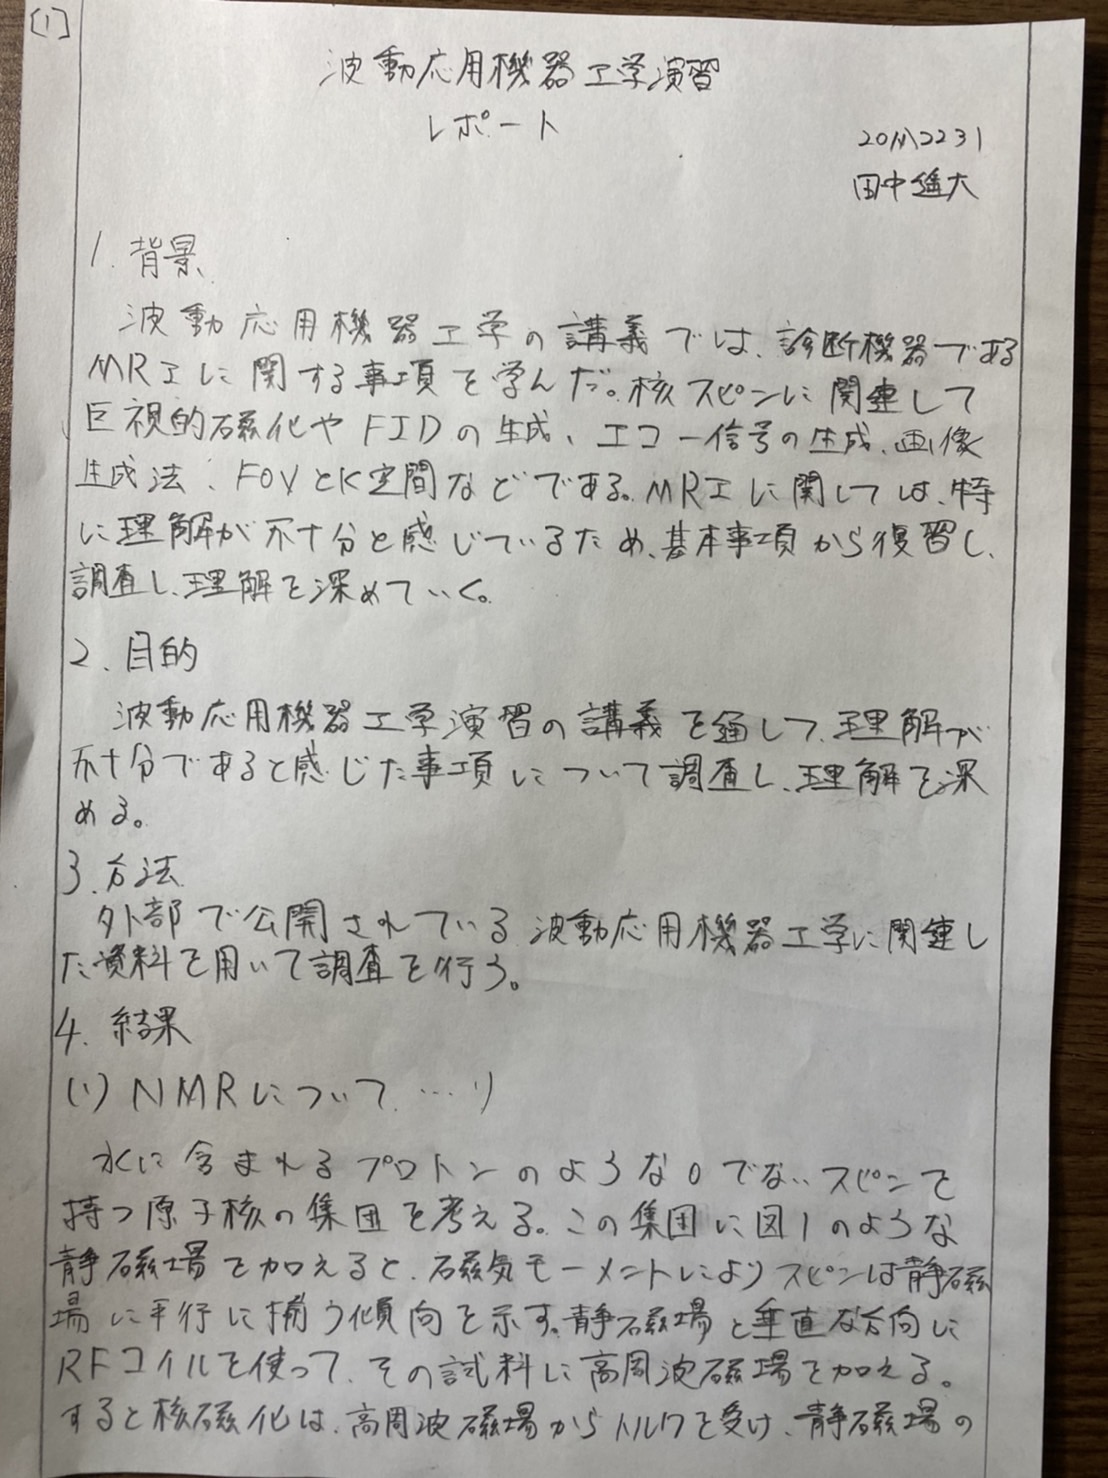 [1]
波動応用機器工学演習
レポート
田中
1. 背景
波動応用機器工学の講義では、診断機器である
MRIに関する事項を学んだ。核スピンに関連して
巨視的磁化やFIDの生成、エコー信号の生成、画像
生成法、FOVとK空間などである。MRIに関しては、特
に理解が不十分と感じているため、基本事項から復習し、
調査し、理解を深めていく。
2. 目的
波動応用機器工学演習の講義を通して、理解が
不十分であると感じた事項について調査し、理解を深
める。
3. 方法
外部で公開されている波動応用機器工学に関連し
た資料を用いて調査を行う。
4. 結果
(1) NMRについて…1)
水に含まれるプロトンのような0でないスピンを
持つ原子核の集団を考える。この集団に図1のような
静磁場を加えると、磁気モーメントによりスピンは静磁
場に平行に揃う傾向を示す。静磁場と垂直な方向に
RFコイルを使って、その試料に高周波磁場を加える。
すると核磁化は、高周波磁場からトルクを受け、静磁場の